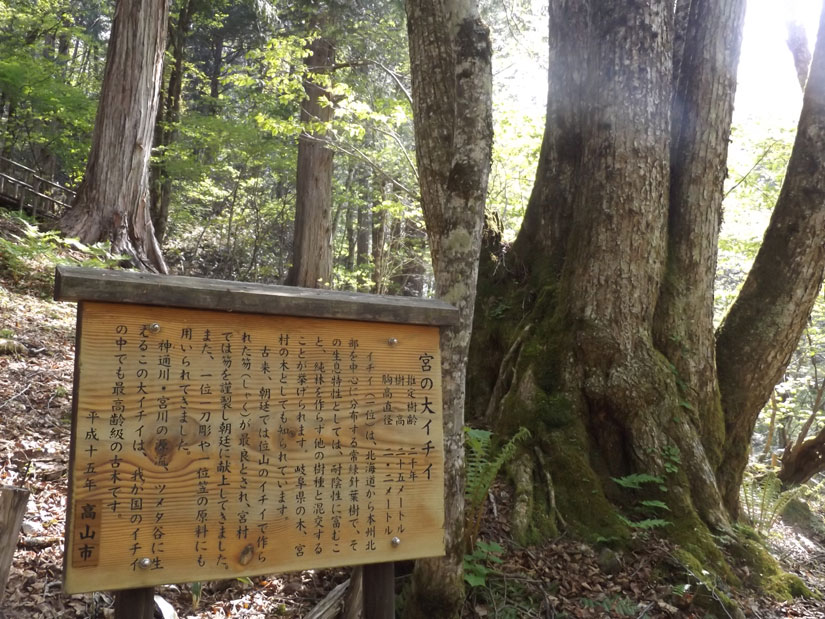 宮の大イチイ
推定樹齢　二千年
樹　高　二十五メートル
胸高直径　二・二メートル
イチイ（一位）は、北海道から本州北
部を中心に分布する常緑針葉樹で、そ
の生息特性としては、耐陰性に富むこ
と、純林を作らず他の樹種と混交する
ことが挙げられます。岐阜県の木、宮
村の木としても知られています。
古来、朝廷では位山のイチイで作ら
れた笏（しゃく）が最良とされ、宮村
では笏を謹製し朝廷に献上してきました。
また、一位一刀彫や一位笠の原料にも
用いられてきました。
神通川・宮川の源流、ツメタ谷に生
えるこの大イチイは、我が国のイチイ
の中でも最高齢級の古木です。
平成十五年　高山市